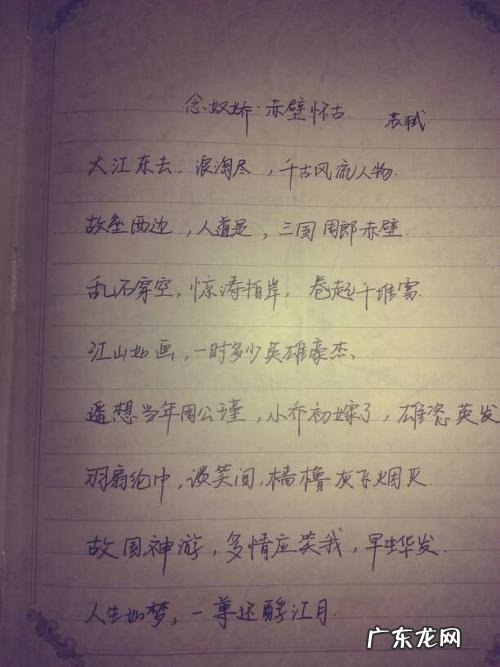 念奴娇·赤壁怀古 苏轼
大江东去，浪淘尽，千古风流人物.
故垒西边，人道是，三国周郎赤壁.
乱石穿空，惊涛拍岸，卷起千堆雪.
江山如画，一时多少英雄豪杰、
遥想当年周公瑾，小乔初嫁了，雄姿英发
羽扇纶巾，谈笑间，樯橹灰飞烟灭.
故国神游，多情应笑我，早生华发.
人生如梦，一尊还酹江月.
广东龙网